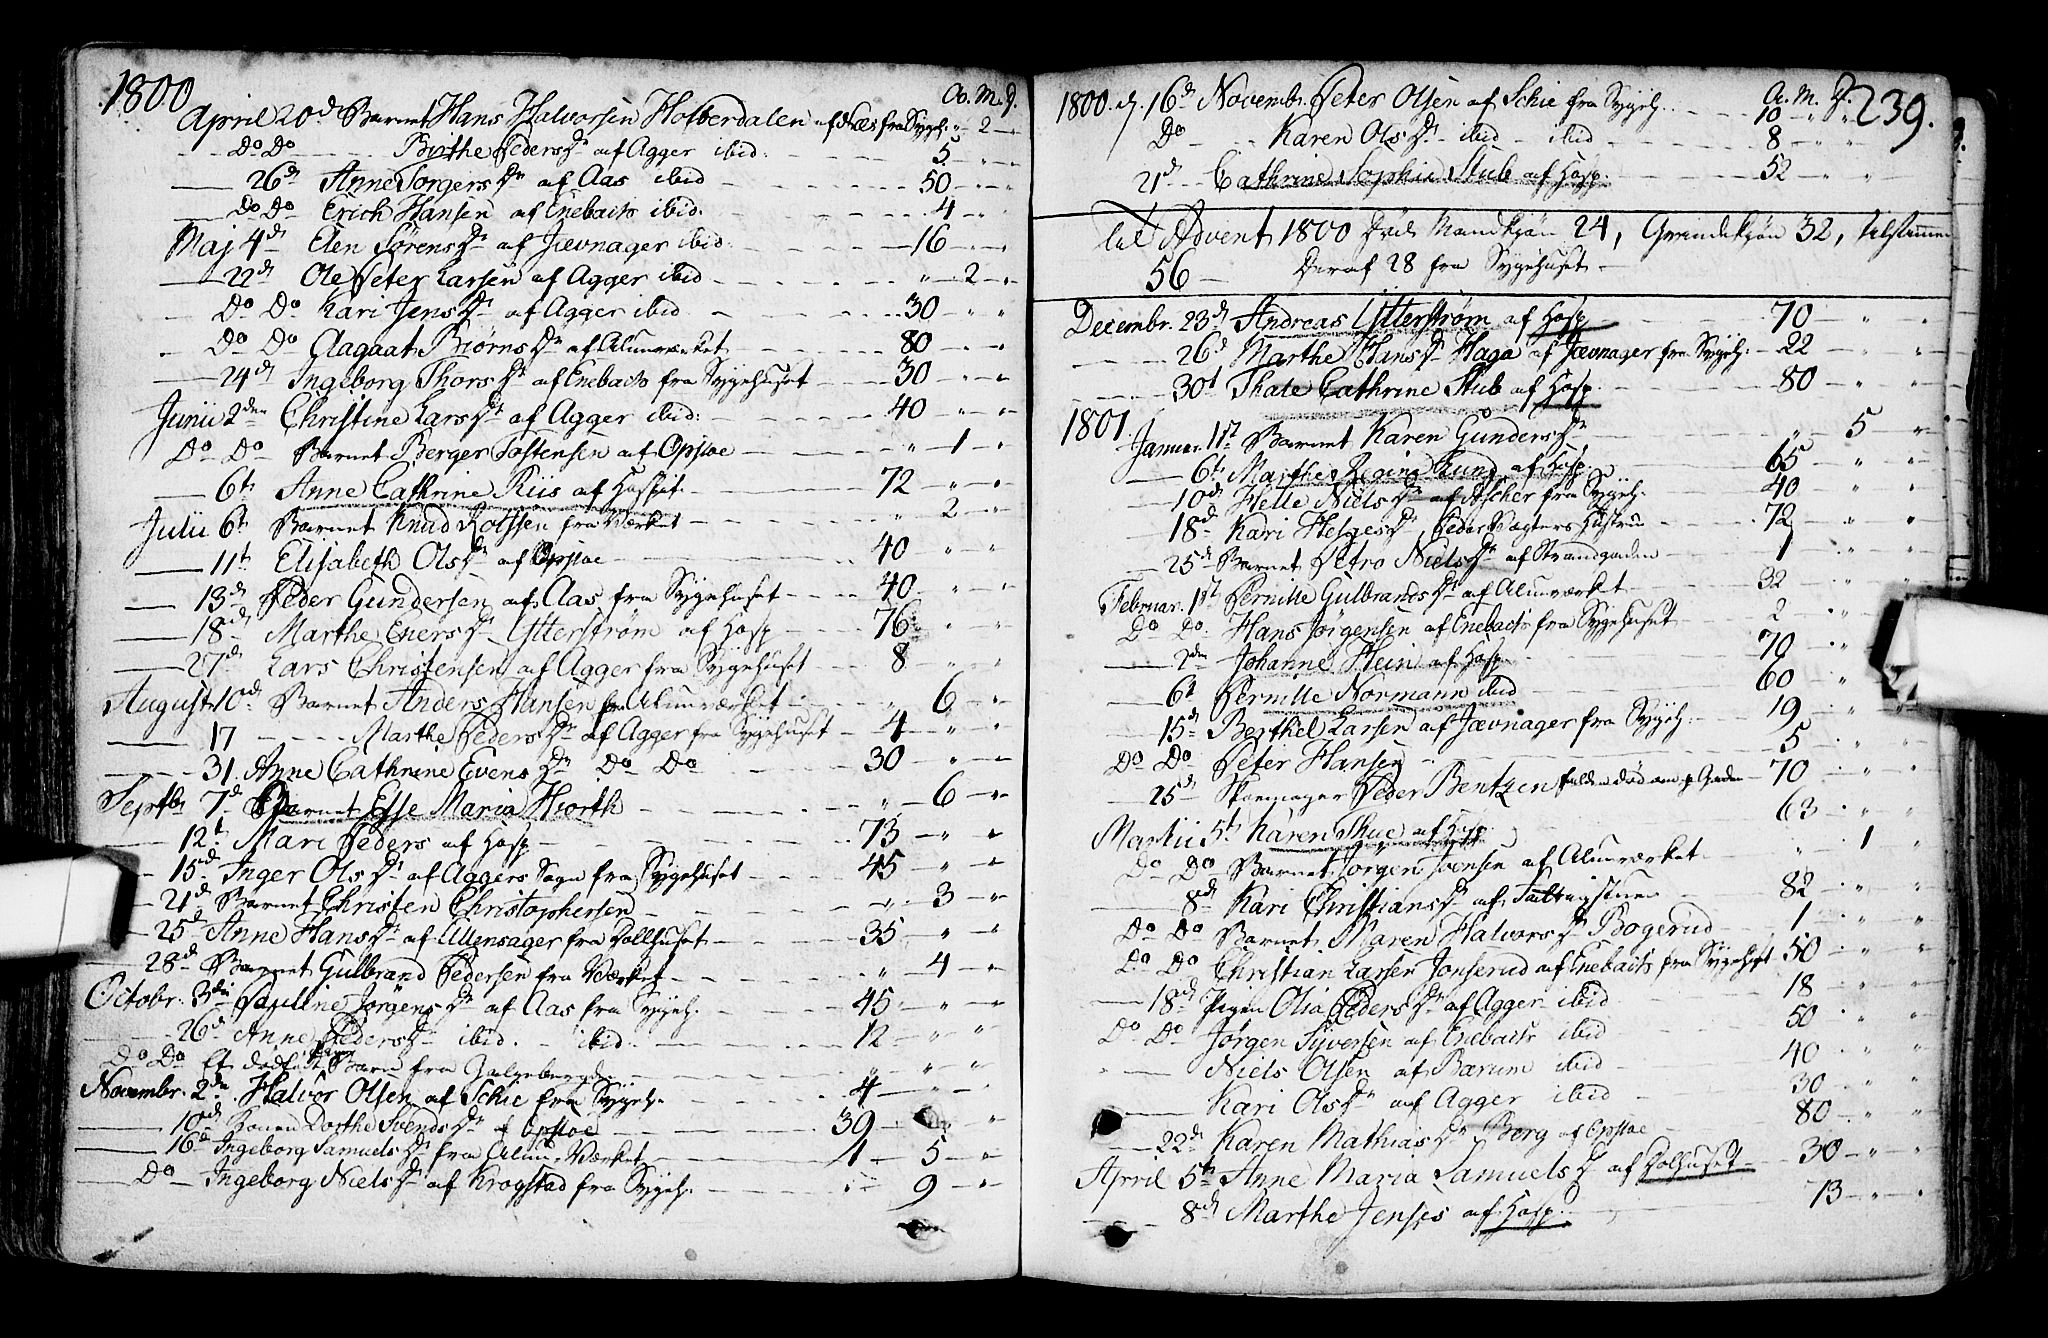 1800 A. M. D.
April 20d Barnet Hans Halvorsen Holberdalen af Næs fra Sygeh. " 2 "
Do Do Birthe Peders Dr af Agger ibid: 5 " "
26d Anne Torgers Dr af Aas ibid 50 " "
Do Do Erich Hansen af Enebaks ibid. 4 " "
Maj 4d Elen Sørens Dr af Jævnager ibid. 16 " "
22d Ole Peter Larsen af Agger ibid " 2 "
Do Do Kari Jens Dr af Agger ibid 30 " "
Do Do Aagaat Biørns Dr af Alunværket 80 " "
24d Ingeborg Thors Dr af Enebaks fra Sygehuset 30 " "
Junii 2den Christine Lars Dr af Agger ibid: 40 " "
Do Do Barnet Berger Tostensen af Opsloe " 1 "
6t Anne Cathrine Riis af Hospit. 72 " "
Julii 6t Barnet Knud Rolfsen fra Værket " 2 "
11t Elisabeth Ols Dr af Opsloe 40 " "
13d Peder Gundersen af Aas fra Sygehuset 40 " "
18d Marthe Eners Dr Ytterstrøm af Hosp 76 " "
27d Lars Christensen af Agger fra Sygehuset 8 " "
August 10d Barnet Anders Hansen fra Alunværket " 6 "
17 Marthe Peders Dr af Agger fra Sygehuset 4 " "
31. Anne Cathrine Evens Dr Do Do 30 " "
Septbr 7d Barnet Else Maria Hiorth " 6 "
12t Mari Peders af Hosp 73 " "
15d Inger Ols Dr af Aggers Sogn fra Sygehuset 45 " "
21d Barnet Christen Christophersen " 3 "
25d Anne Hans Dr af Ullensager fra Dollhuset 35 " "
28d Barnet Gulbrand Pedersen fra Værket " 4 "
Octobr. 3die Pauline Jørgens Dr af Aas fra Sygeh. 45 " "
26d Anne Peders Dr ibid. ibid. 12 " "
Do Do Et dødfødt Barn fra Galgeberget " " "
Novembr. 2den Halvor Olsen af Schie fra Sygeh. 4 " "
10d Konen Dorthe Svends Dr af Opsloe 39 " "
16d Ingeborg Samuels Dr fra Alun-Værket 1 5 "
Do Ingeborg Niels Dr af Krogstad fra Sygeh. " 9 "
239.
A. M. D.
1800. d. 16d Novembr. Peter Olsen af Schie fra Sygeh. 10 " "
Do Karen Ols Dr ibid ibid 8 " "
21d Cathrine Sophie Stub af Hosp. 52 " "
til Advent 1800 Døde Mandkjøn 24, Qvindekjøn 32, tilsammen
56 Deraf 28 fra Sygehuset
Decembr. 23d Andreas Ytterstrøm af Hosp 70 " "
26d Marthe Hans Dr Haga af Jævnager fra Sygeh. 22 " "
30t Thale Cathrine Stub af Hosp. 80 " "
1801. Januar. 1st Barnet Karen Gunders Dr " 5 "
6t Marthe Regine Lund af Hosp. 65 " "
10d Helle Niels Dr af Ascher fra Sygeh. 40 " "
18d Kari Helges Dr Peder Vægters Hustrue 72 " "
25d Barnet Petro Niels Dr af Strandgaden 1 " "
Februar. 1st Pernille Gulbrands Dr af Alunværket 32 " "
Do Do. Hans Jørgensen af Enebaks fra Sygehuset 2 " "
2den Johanne Hein af Hosp 70 " "
6t Pernille Normann ibid 60 " "
15d Berthel Larsen af Jævnager fra Sygeh. 19 " "
Do Do Peter Hansen 5 " "
25d Skoemager Peder Bentzen falden død om p. Gaden 70 " "
Martii 5t Karen Thue af Hosp. 63 " "
Do Do Barnet Jørgen Svensen af Alunværket " 1 "
8d Kari Christians Dr af Fattigstuen 82 " "
Do Do Barnet Maren Halvors Dr Bogerud 1 " "
Do Do Christian Larsen Jonserud af Enebaks fra Sygehuset 50 " "
18d Pigen Olia Peders Dr af Agger ibid 18 " "
Do Do Jørgen Syversen af Enebaks ibid 50 " "
Niels Olsen af Barum ibid 40 " "
Kari Ols Dr af Agger ibid 30 " "
22d Karen Mathias Dr Berg af Opsloe 80 " "
April 5te Anne Maria Samuels Dr af Dolhuset 30 " "
8d Marthe Jenses af Hosp. 73 " "